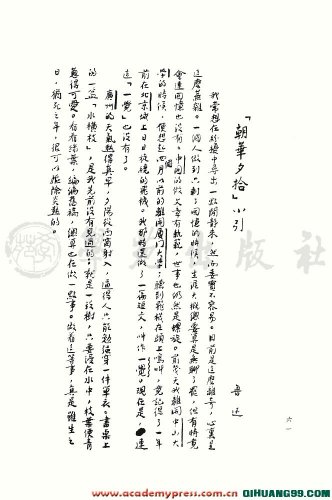 「朝華夕拾」小引
魯迅
我常想在紛擾中尋出一點閒靜來，然而委實不容易。目前是這麼離奇，心裏是
這麼蕪雜。一個人做到只剩了回憶的時候，生涯大概總要算是無聊了罷，但有時竟
會連回憶也沒有。中國的做文章有軌範，世事也仍然是螺旋。前幾天我離開中山大
學的時候，便想起四個月以前的離開廈門大學；聽到飛機在頭上鳴叫，竟記得了一年
前在北京城上日日旋繞的飛機。我那時還做了一篇短文，叫作一覺。現在是，連
這「一覺」也沒有了。
廣州的天氣熱得真早，夕陽從西窗射入，逼得人只能勉強穿一件單衣。書桌上
的一盆「水橫枝」，是我先前沒有見過的：就是一段樹，只要浸在水中，枝葉便青
蔥得可愛。看看綠葉，編編舊稿，總算也在做一點事。做着這等事，真是雖生之
日，猶死之年，很可以驅除炎熱的。
六一
出版社
www.academypress.com.cn
QIHUANG99.com